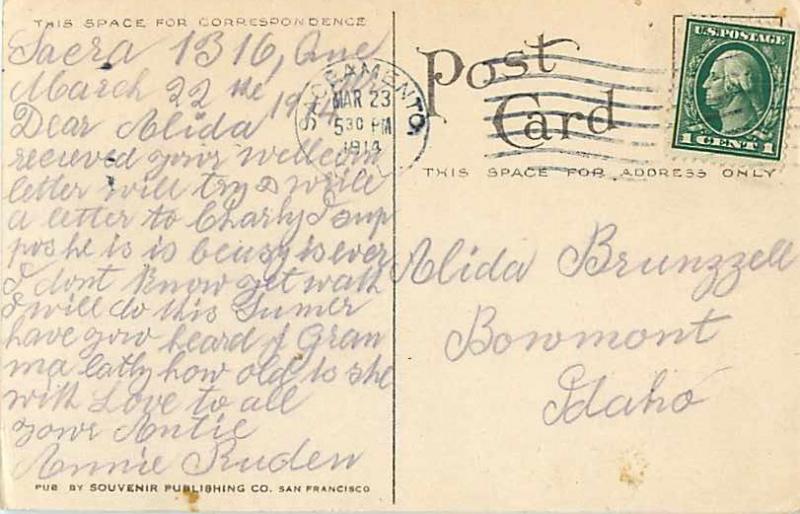 THIS SPACE FOR CORRESPONDENCE
Sacra 1316, Ave
March 22 the 1914
Dear Alida
recieved your wellcom
letter will try & write
a letter to Charly I sup
pos he is is beusy is ever
I dont know yet wath
I will do this Sumer
have yow heard of Gran
ma latly how old is she
with Love to all
yowr Antie
Annie Ruden
PUB BY SOUVENIR PUBLISHING CO. SAN FRANCISCO
SACRAMENTO
MAR 23
5 30 PM
1914
Post
Card
THIS SPACE FOR ADDRESS ONLY
U.S. POSTAGE
1 CENT 1
Alida Brunzzell
Bowmont
Idaho